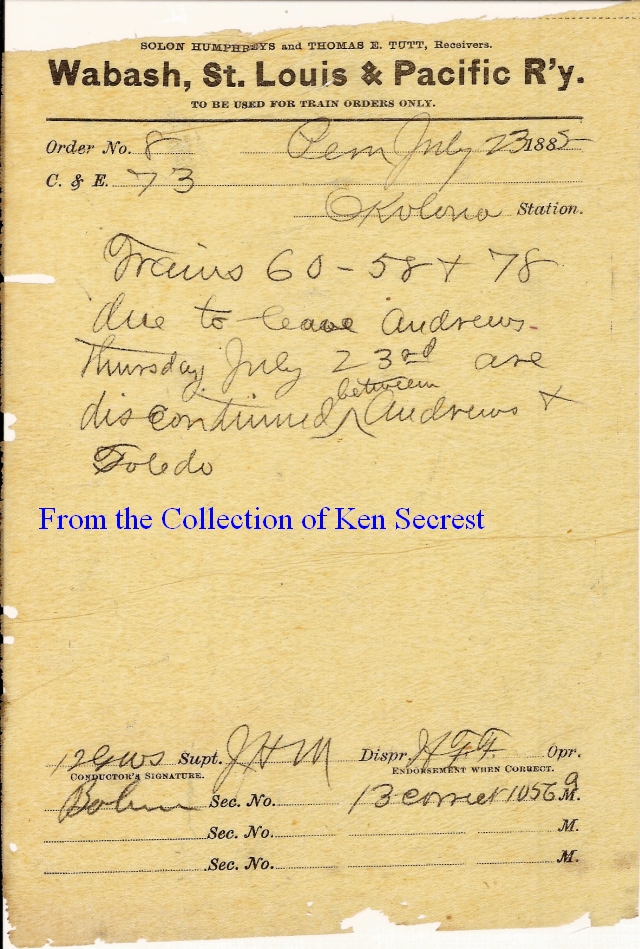 SOLON HUMPHREYS and THOMAS E. TUTT, Receivers.
Wabash, St. Louis & Pacific R'y.
TO BE USED FOR TRAIN ORDERS ONLY.
Order No. 8 Peru July 23 1885
C. & E. 73
Okolona Station.
Trains 60-58 + 78
due to leave Andrews
Thursday July 23rd are
discontinued between Andrews +
Toledo
From the Collection of Ken Secrest
Supt. JHM Dispr. H.F.F. Opr.
CONDUCTOR'S SIGNATURE. ENDORSEMENT WHEN CORRECT.
Sec. No. 13 correct 1056 a M.
Sec. No. M.
Sec. No. M.